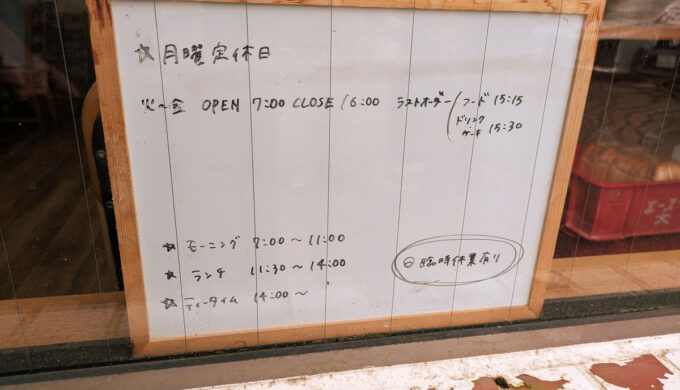 ☆月曜定休日
火〜金 OPEN 7:00 CLOSE 16:00 ラストオーダー フード 15:15
ドリンク
ケーキ 15:30
☆ モーニング 7:00 〜 11:00
☆ ランチ 11:30 〜 14:00
☆ ティータイム 14:00 〜
◎臨時休業有り